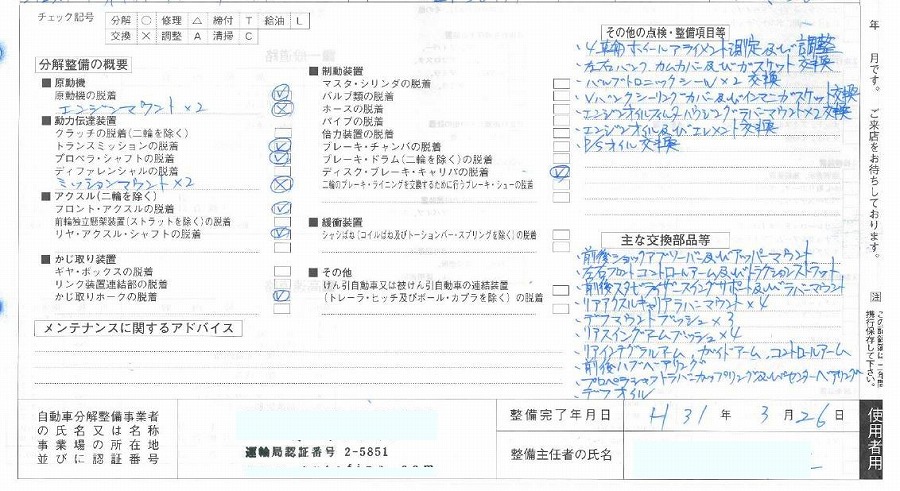 チェック記号
分解 ○ 修理 △ 締付 T 給油 L
交換 × 調整 A 清掃 C
分解整備の概要
■ 原動機
原動機の脱着
エンジンマウント×2
■ 動力伝達装置
クラッチの脱着(二輪を除く)
トランスミッションの脱着
プロペラ・シャフトの脱着
ディファレンシャルの脱着
ミッションマウント×2
■ アクスル(二輪を除く)
フロント・アクスルの脱着
前輪独立懸架装置(ストラットを除く)の脱着
リヤ・アクスル・シャフトの脱着
■ かじ取り装置
ギヤ・ボックスの脱着
リンク装置連結部の脱着
かじ取りホークの脱着
■ 制動装置
マスタ・シリンダの脱着
バルブ類の脱着
ホースの脱着
パイプの脱着
倍力装置の脱着
ブレーキ・チャンバの脱着
ブレーキ・ドラム(二輪を除く)の脱着
ディスク・ブレーキ・キャリパの脱着
二輪のブレーキ・ライニングを交換するために行うブレーキ・シューの脱着
■ 緩衝装置
シャシばね(コイルばね及びトーションバー・スプリングを除く)の脱着
■ その他
けん引自動車又は被けん引自動車の連結装置
(トレーラ・ヒッチ及びボール・カプラを除く)の脱着
その他の点検・整備項目等
・4輪ホイールアライメント測定及び調整
・左右バンク カムカバー及びガスケット交換
・バルブトロニックシール×2 交換
・Vバンクシーリングカバー及びインナーガスケット交換
・エンジンオイルフィルターハウジングラバーマウント×2交換
・エンジンオイル及びエレメント交換
・P/Sオイル交換
主な交換部品等
・前後ショックアブソーバー及びアッパーマウント
・左右フロントコントロールアーム及びトラクションストラット
・前後スタビライザースイングサポート及びラバーマウント
・リアアクスルキャリアラバーマウント×4
・デフマウントブッシュ×3
・リアスイングアームブッシュ×4
・リアインテグラルアーム、ガイドアーム、コントロールアーム
・前後ハブベアリング
・プロペラシャフトラバーカップリング及びセンターベアリング
・デフオイル
メンテナンスに関するアドバイス
自動車分解整備事業者
の氏名又は名称
事業場の所在地
並びに認証番号
運輸局認証番号 2-5851
整備完了年月日 H31年 3月26日
整備主任者の氏名
年
月です。
ご来店をお待ちしております。
注
携行保存して下さい。
使用者用